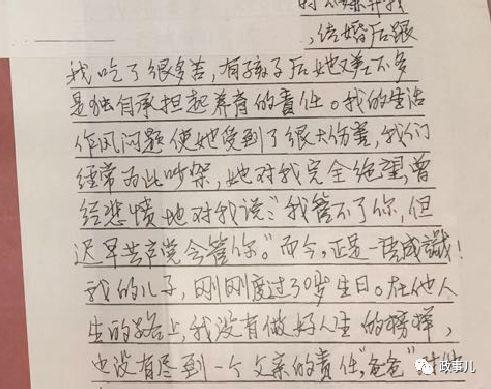 时
,结婚后跟
我吃了很多苦,有孩子后她又差不多
是独自承担起养育的责任。我的生活
作风问题使她受到了很大伤害,我们
经常为此吵架,她对我完全绝望,曾
经悲愤地对我说:“我管不了你,但
迟早共产党会管你。”而今,正是一语成谶!
我的儿子,刚刚度过30岁生日。在他人
生的路上,我没有做好人生的榜样,
也没有尽到一个父亲的责任,“爸爸”
政事儿